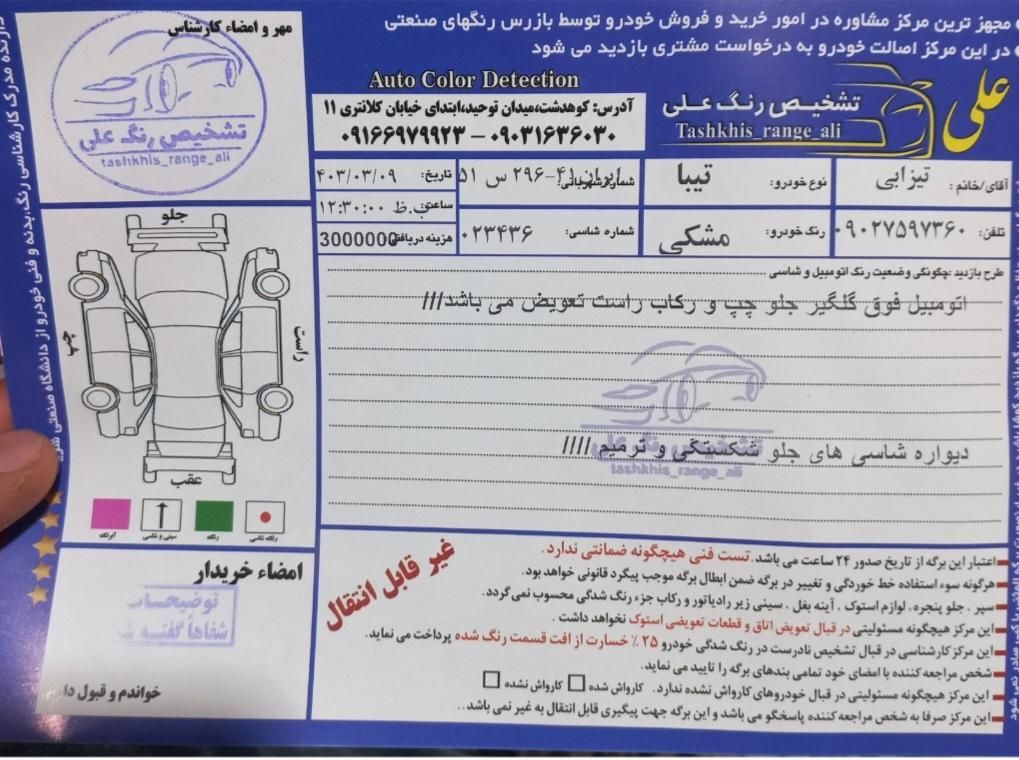 مجهز ترین مرکز مشاوره در امور خرید و فروش خودرو توسط بازرس رنگهای صنعتی
در این مرکز اصالت خودرو به درخواست مشتری بازدید می شود
مهر و امضاء کارشناس
تشخیص رنگ علی
tashkhis_range_ali
Auto Color Detection
آدرس: کوهدشت،میدان توحید،ابتدای خیابان کلانتری ۱۱
۰۹۱۶۶۹۷۹۹۲۳ – ۰۹۰۳۱۶۳۶۰۳۰
تشخیص رنگ علی
Tashkhis_range_ali
علی
آقای/خانم : تیزابی
نوع خودرو: تیبا
شماره شهربانی: ایران ۴۱-۲۹۶ س ۵۱
تاریخ: ۴۰۳/۰۳/۰۹
ساعت: ب.ظ ۱۲:۳۰:۰۰
تلفن: ۰۹۰۲۷۵۹۷۳۶۰
رنگ خودرو: مشکی
شماره شاسی: ۰۲۳۴۳۶
هزینه دریافتی: 3000000
طرح بازدید :چگونگی وضعیت رنگ اتومبیل و شاسی
اتومبیل فوق گلگیر جلو چپ و رکاب راست تعویض می باشد///
تشخیص رنگ علی
tashkhis_range_ali
دیواره شاسی های جلو شکستگی و ترمیم ////
جلو
راست
چپ
عقب
رنگه شاسی
رنگه
سینی و شاسی
ابرنگه
امضاء خریدار
توضیحات
شفاهاً گفته
خواندم و قبول
غیر قابل انتقال
اعتبار این برگه از تاریخ صدور ۲۴ ساعت می باشد. تست فنی هیچگونه ضمانتی ندارد.
هرگونه سوء استفاده خط خوردگی و تغییر در برگه ضمن ابطال برگه موجب پیگرد قانونی خواهد بود.
سپر . جلو پنجره. لوازم استوک . آینه بغل . سینی زیر رادیاتور و رکاب جزء رنگ شدگی محسوب نمی گردد.
این مرکز هیچگونه مسئولیتی در قبال تعویض اتاق و قطعات تعویضی استوک نخواهد داشت .
این مرکز کارشناسی در قبال تشخیص نادرست در رنگ شدگی خودرو ۲۵ ٪ خسارت از افت قسمت رنگ شده پرداخت می نماید.
شخص مراجعه کننده با امضای خود تمامی بندهای برگه را تایید می نماید.
این مرکز هیچگونه مسئولیتی در قبال خودروهای کارواش نشده ندارد. کارواش شده کارواش نشده
این مرکز صرفا به شخص مراجعه کننده پاسخگو می باشد و این برگه جهت پیگیری قابل انتقال به غیر نمی باشد..